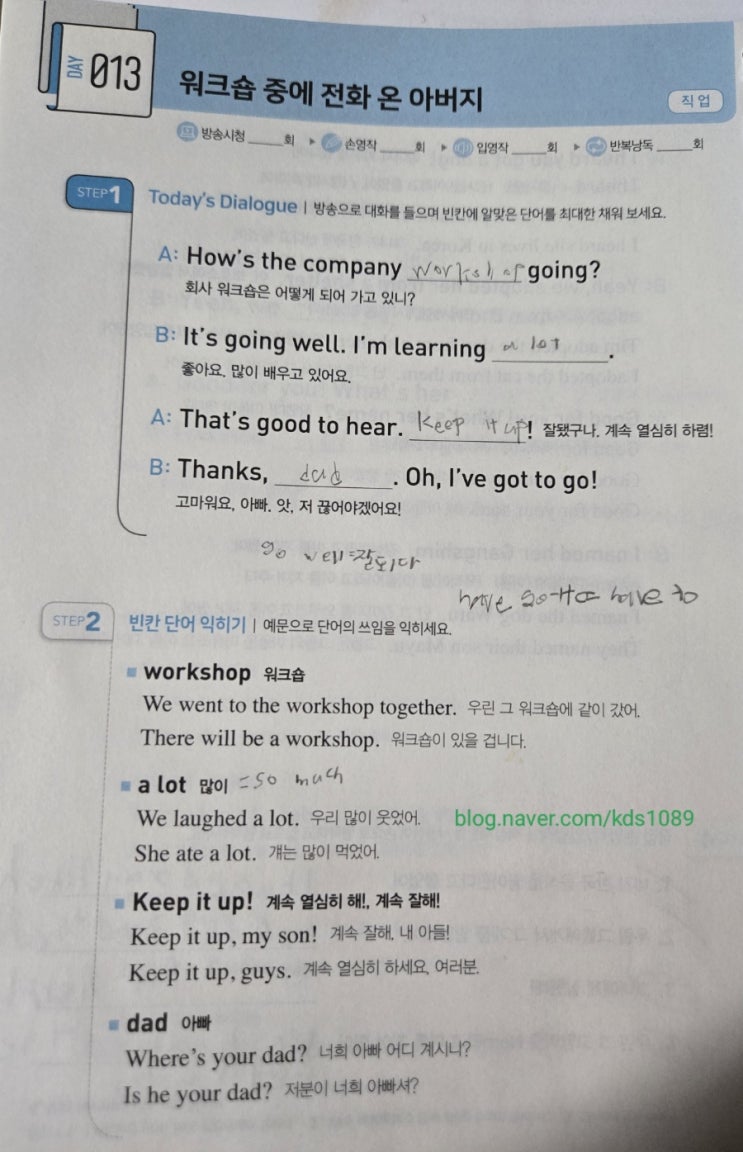 DAY 013
워크숍 중에 전화 온 아버지
직업
방송시청 _____회 ▶ 손영작 _____회 ▶ 입영작 _____회 ▶ 반복낭독 _____회
STEP 1 Today's Dialogue | 방송으로 대화를 들으며 빈칸에 알맞은 단어를 최대한 채워 보세요.
A: How's the company workshop going?
회사 워크숍은 어떻게 되어 가고 있니?
B: It's going well. I'm learning a lot.
좋아요. 많이 배우고 있어요.
A: That's good to hear. Keep it up! 잘됐구나. 계속 열심히 하렴!
B: Thanks, dad. Oh, I've got to go!
고마워요, 아빠. 앗, 저 끊어야겠어요!
go well=잘되다
have have to
STEP 2 빈칸 단어 익히기 | 예문으로 단어의 쓰임을 익히세요.
■ workshop 워크숍
We went to the workshop together. 우린 그 워크숍에 같이 갔어.
There will be a workshop. 워크숍이 있을 겁니다.
■ a lot 많이 =so much
We laughed a lot. 우리 많이 웃었어. blog.naver.com/kds1089
She ate a lot. 걔는 많이 먹었어.
■ Keep it up! 계속 열심히 해!, 계속 잘해!
Keep it up, my son! 계속 잘해, 내 아들!
Keep it up, guys. 계속 열심히 하세요, 여러분.
■ dad 아빠
Where's your dad? 너희 아빠 어디 계시니?
Is he your dad? 저분이 너희 아빠셔?